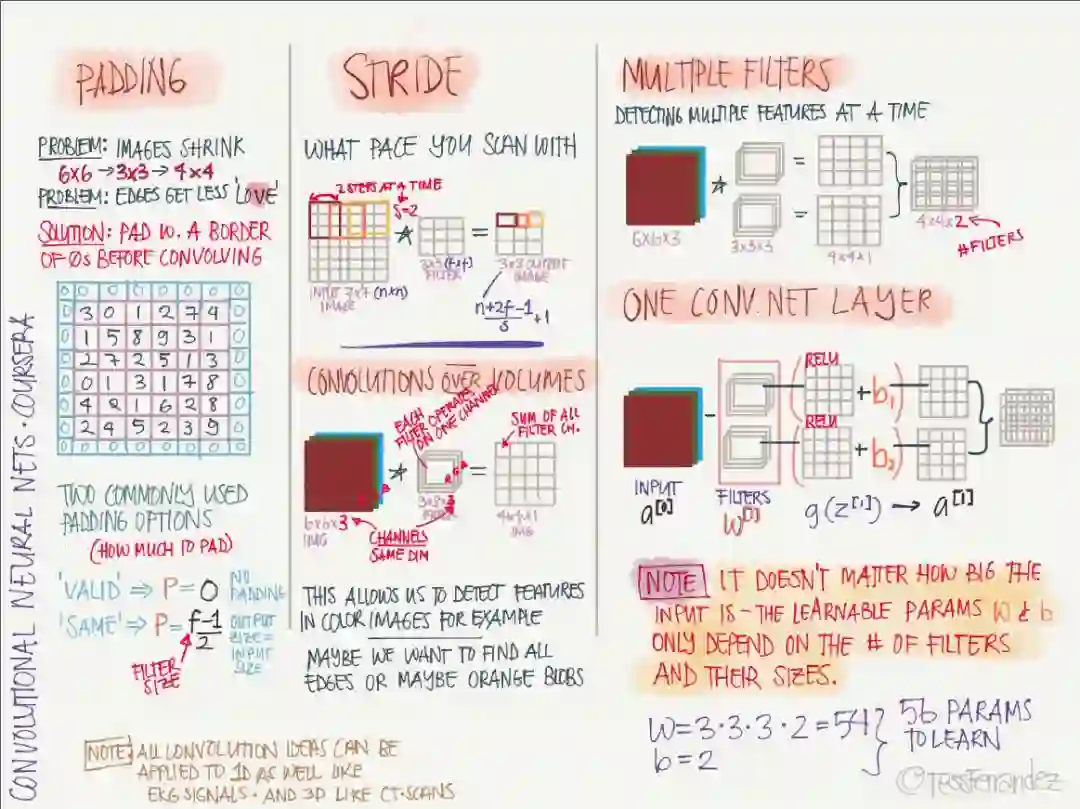 CONVOLUTIONAL NEURAL NETS · COURSERA
PADDING
PROBLEM: IMAGES SHRINK
6X6 → 3X3 → 4X4
PROBLEM: EDGES GET LESS 'LOVE'
SOLUTION: PAD W. A BORDER
OF 0s BEFORE CONVOLVING
0 0 0 0 0 0 0 0
0 3 0 1 2 7 4 0
0 1 5 8 9 3 1 0
0 2 7 2 5 1 3 0
0 0 1 3 1 7 8 0
0 4 2 1 6 2 8 0
0 2 4 5 2 3 9 0
0 0 0 0 0 0 0 0
TWO COMMONLY USED
PADDING OPTIONS
(HOW MUCH TO PAD)
'VALID' ⇒ P=0 NO
PADDING
'SAME' ⇒ P= f-1/2 OUTPUT
SIZE=
INPUT
SIZE
FILTER
SIZE
NOTE: ALL CONVOLUTION IDEAS CAN BE
APPLIED TO 1D AS WELL LIKE
EKG SIGNALS · AND 3D LIKE CT-SCANS
STRIDE
WHAT PACE YOU SCAN WITH
2 STEPS AT A TIME
S=2
* =
INPUT 7x7 (n×n)
IMAGE
3x3 (f×f)
FILTER
3x3 OUTPUT
IMAGE
n+2f-1/s +1
CONVOLUTIONS OVER VOLUMES
EACH
FILTER OPERATES
ON ONE CHANNEL
SUM OF ALL
FILTER CH.
* =
R G B
6x6x3
IMG
3x3x3
4x4x1
IMG
CHANNELS
SAME DIM
THIS ALLOWS US TO DETECT FEATURES
IN COLOR IMAGES FOR EXAMPLE
MAYBE WE WANT TO FIND ALL
EDGES OR MAYBE ORANGE BLOBS
MULTIPLE FILTERS
DETECTING MULTIPLE FEATURES AT A TIME
* =
=
6x6x3
3x3x3
4x4x1
4x4x2
#FILTERS
ONE CONV.NET LAYER
RELU
+ b1
RELU
+ b2
INPUT
a[0]
FILTERS
W[1]
g(z[1]) → a[1]
NOTE IT DOESN'T MATTER HOW BIG THE
INPUT IS - THE LEARNABLE PARAMS W & b
ONLY DEPEND ON THE # OF FILTERS
AND THEIR SIZES.
W=3·3·3·2=54
b=2
56 PARAMS
TO LEARN
©TessFerrandez